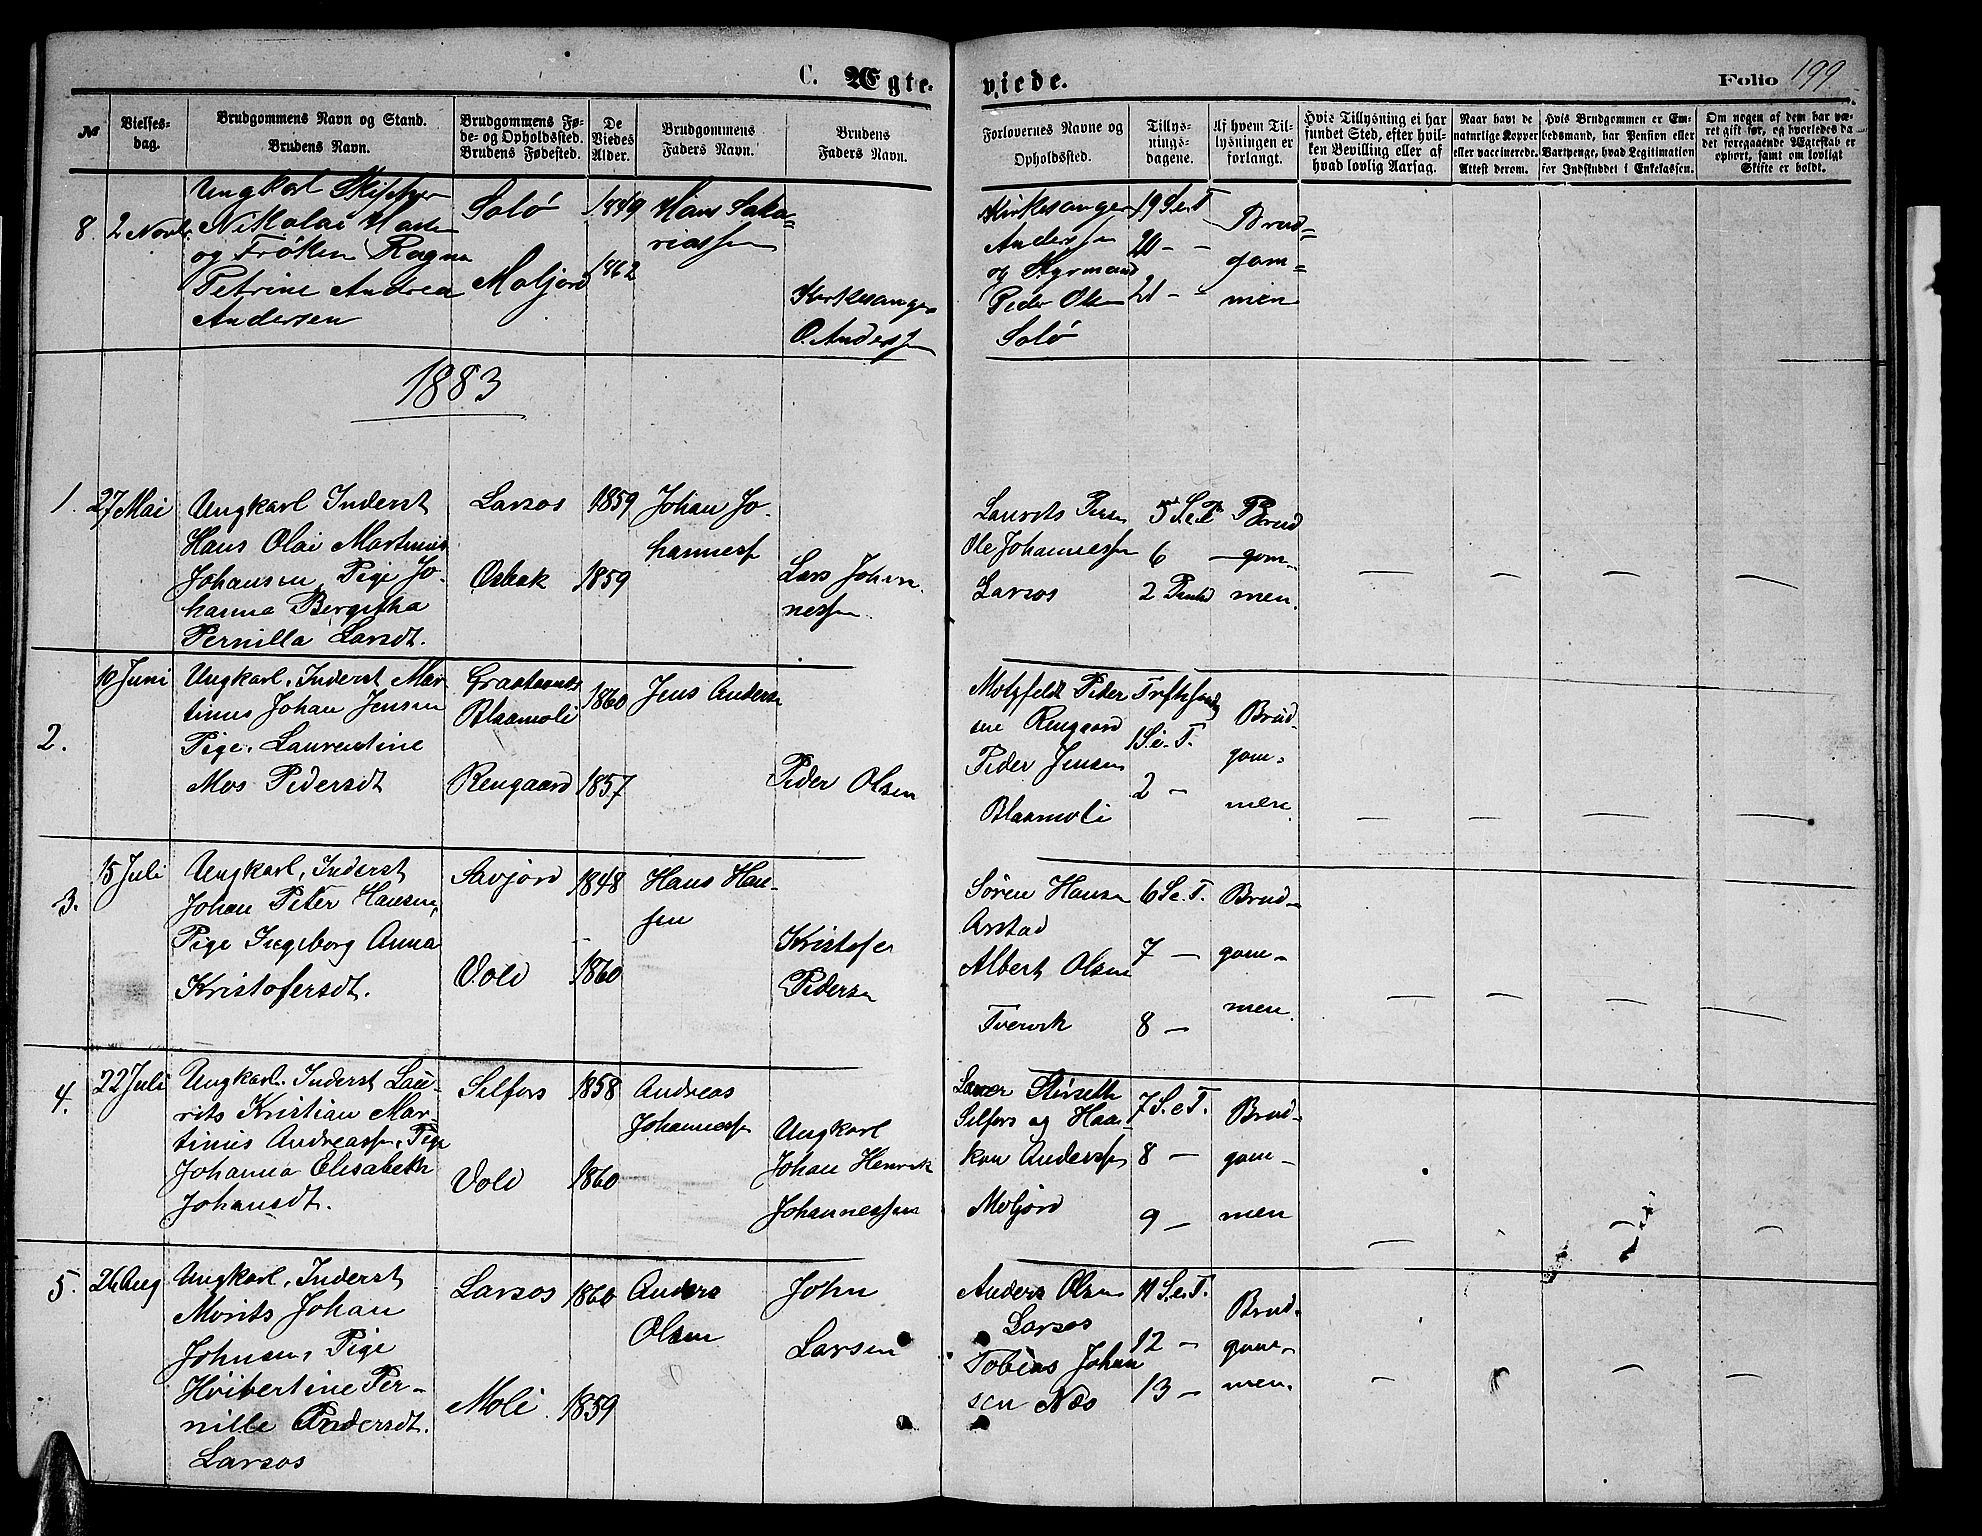 C. Ægte-
viede.
Folio 199.
№
Vielses-
dag.
Brudgommens Navn og Stand.
Brudens Navn.
Brudgommens Fø-
de- og Opholdssted.
Brudens Fødested.
De
Viedes
Alder.
Brudgommens
Faders Navn.
Brudens
Faders Navn.
Forlovernes Navne og
Opholdssted.
Tillys-
nings-
dagene.
Af hvem Til-
lysningen er
forlangt.
Hvis Tillysning ei har
fundet Sted, efter hvil-
ken Bevilling eller af
hvad lovlig Aarsag.
Naar havt de
naturlige Kopper
eller vaccinerede.
Attest derom.
Hvis Brudgommen er Em-
bedsmand, har Pension eller
Vartpenge, hvad Legitimation
for Indskuddet i Enkekassen.
Om nogen af dem har væ-
ret gift før, og hvorledes da
det foregaaende Ægteskab er
ophørt, samt om lovligt
Skifte er holdt.
8. 2 Novbr.
Ungkarl Skipper
Nikolai Hansen
og Frøken Ragna
Petrine Andrea
Andersen
Solø
Moljord
1849
1862
Hans Saka=
riassen
Kirkesanger
O. Anderssen
Kirkesanger
Anderssen
og Styrmand
Peder Olsen
Solø
19 S.e.T
20 —
21 —
Brud=
gom=
men
1883
1. 27 Mai
Ungkarl Inderst
Hans Olai Martinus
Johansen, Pige Jo-
hanna Bergitha
Pernilla Larsdt.
Larsos
Osbak
1859
1859
Johan Jo-
hanness.
Lars Johan-
nessen
Laurits Peders
Ole Johannessen
Larsos
5 S.e.P
6 —
2 Pintsd
Brud
gom-
men.
2.
10 Juni
Ungkarl, Inderst Mar-
tinus Johan Jensen
Pige, Laurentine
Mos Pedersdt
Blaamoli
Rengaard
1860
1857
Jens Anders
Peder Olsen
Motzfeldt Peder
sen Rengaard
Peder Jensen
Blaamoli
1 S.e.T.
2 —
Brud-
gom-
men
3.
15 Juli
Ungkarl, Inderst
Johan Peter Hansen,
Pige Ingeborg Anna
Kristofersdt.
Savjord
Vold
1848
1860
Hans Han-
sen
Kristofer
Pedersen
Søren Hansen
Arstad
Albert Olsen
Tvervik
6 S.e.T.
7 —
8 —
Brud-
gom-
men.
4.
22 Juli
Ungkarl. Inderst Lau-
rits Kristian Mar-
tinus Andreassen, Pige
Johanna Elisabeth
Johansdt.
Selfors
Vold
1858
1860
Andreas
Johannessen
Ungkarl
Johan Henrik
Johannessen
Selfors og Haa-
kon Anderssen
Moljord
7 S.e.T.
8 —
9 —
Brud-
gom-
men
5. 26 Aug
Ungkarl, Inderst
Morits Johan
Johnsen, Pige
Hribertine Per-
nille Andersdt.
Larsos
Larsos
Moli
1860
1859
Anders
Olsen
John
Larsen
Anders Olsen
Larsos
Tobias Johan
sen Næs
11 S.e.T.
12 —
13 —
Brud-
gom-
men.